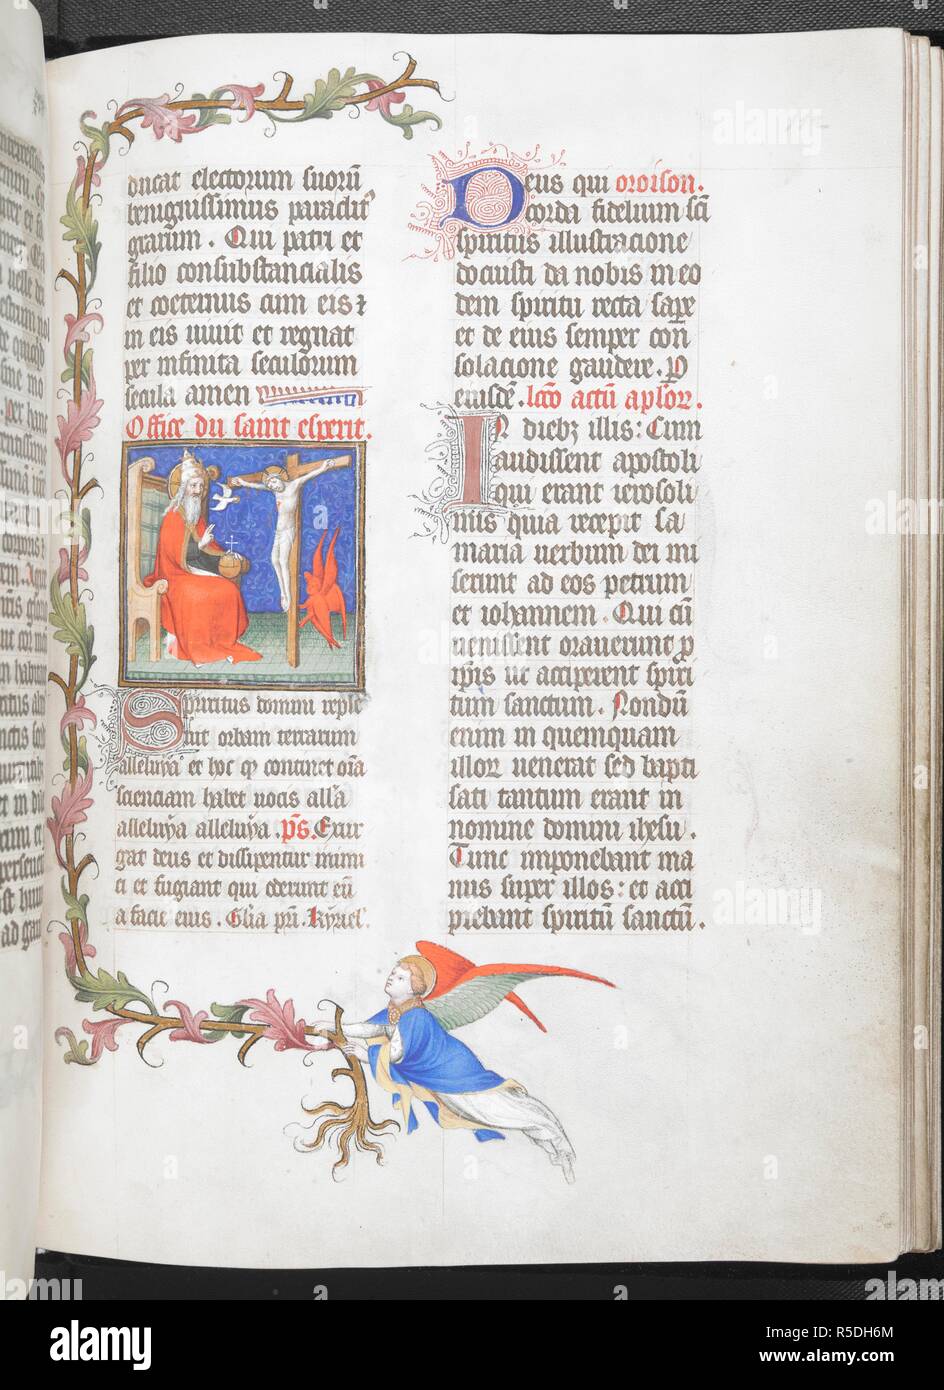 ducat electorum suorū
benignissimus paraclit᾿
gratum. Qui patri et
filio consubstancialis
et coeternus cum eis ⁊
in eis uiuit et regnat
per infinita seculorum
secula amen
Office du saint esperit.
Spiritus domini reple
uit orbem terrarum
alleluya et hoc qd continet oīa
scienciam habet uocis allā
alleluya alleluya. ps̄. Exur
gat deus et dissipentur inimi
ci et fugiant qui oderunt eū
a facie eius. Glīa pr̄i. Kyriel'.
Deus qui oroison.
corda fidelium sc̄i
spiritus illustracione
docuisti da nobis in eo
dem spiritu recta sape
et de eius semper con̄
solacione gaudere. P
eiusdē. lcō actū apłoꝝ.
In diebꝫ illis: Cum
audissent apostoli
qui erant ierosoli
mis quia recepit sa
maria uerbum dei mi
serunt ad eos petrum
et iohannem. Qui cū
uenissent orauerunt ꝓ
ip̄is ut acciperent spiri
tum sanctum. Nondū
enim in quemquam
illoꝝ uenerat sed bapti
sati tantum erant in
nomine domini ihesu.
Tunc imponebant ma
nus super illos: et acci
piebant spiritū sanctū.
alamy
Image ID: R5DH6M
www.alamy.com